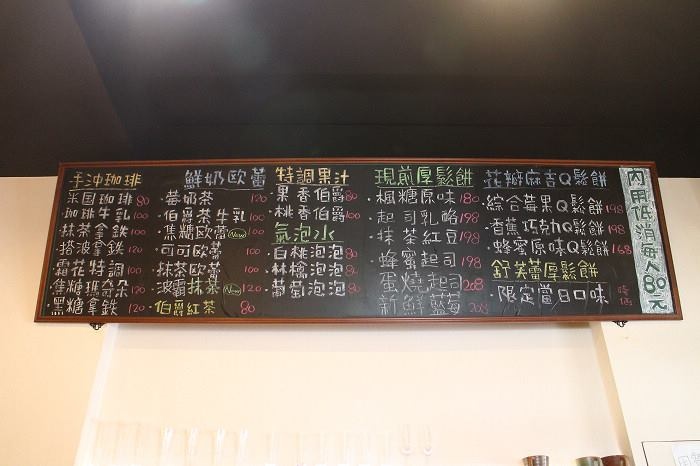 手沖咖琲
米国咖琲 80
咖琲牛乳 100
抹茶拿鉄 100
搭波拿鉄 120
霜花特調 100
焦糖瑪奇朵 120
黑糖拿鉄 120
鮮奶欧蕾
·莓奶茶 120
·伯爵茶牛乳 100
·焦糖欧蕾 New 100
·可可欧蕾 100
·抹茶欧蕾 100
·波霸抹茶 New 120
·伯爵紅茶 80
特調果汁
果香伯爵 80
桃香伯爵 100
氣泡水
白桃泡泡 80
林檎泡泡 80
葡萄泡泡 80
現煎厚鬆餅
·楓糖原味 180
·起司乳酪 198
·抹茶紅豆 198
·蜂蜜起司 198
蛋燒起司 208
新鮮藍莓 208
花瓣麻吉Q鬆餅
·綜合莓果Q鬆餅 198
·香蕉巧克力Q鬆餅 198
·蜂蜜原味Q鬆餅 168
舒芙蕾厚鬆餅
·限定當日口味 時価
內用低消每人80元